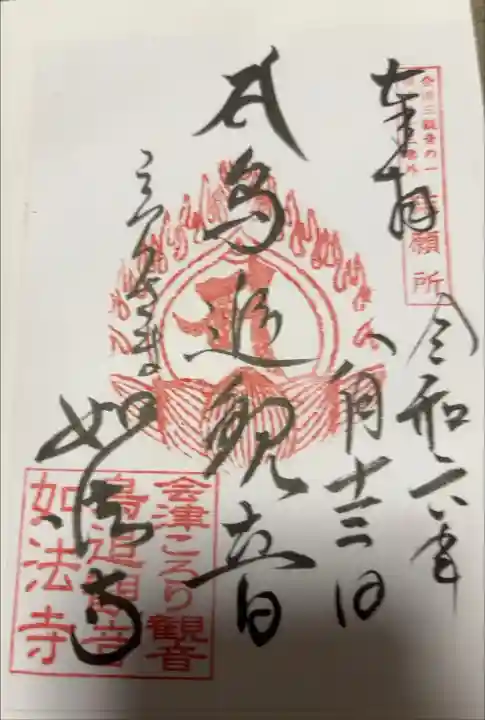 奉拝
令和六年
八月十三日
鳥追観音
如法寺
会津三観音の一
結願所
会津ころり観音
鳥追観音
如法寺